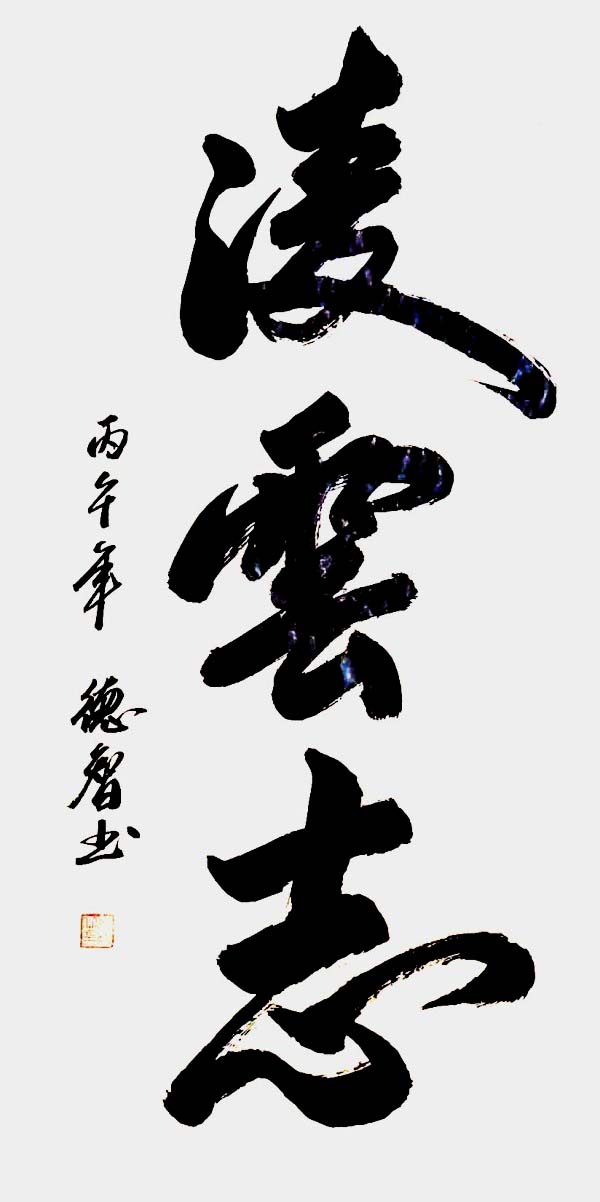 凌雲志
丙午年 德智书